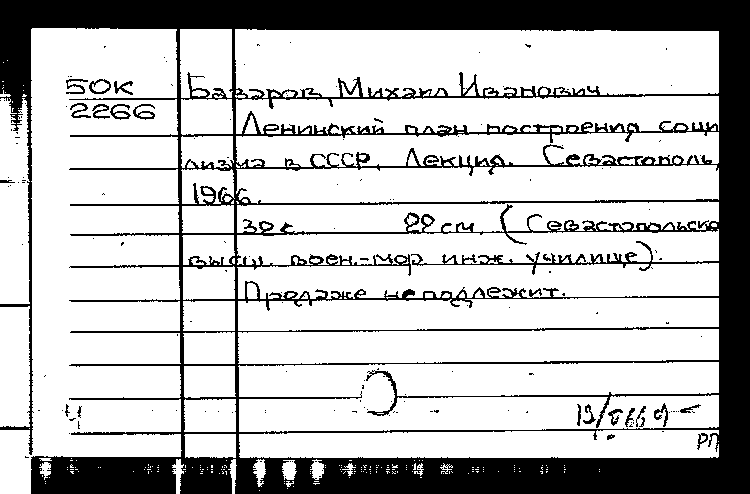 БОК Базаров, Михаил Иванович.
2266
Ленинский план построения соци
лизма в СССР. Лекция. Севастополь,
1966.
32 с. 22 см. (Севастопольско
высш. воен.-мор. инж. училище).
Продаже не подлежит.
Ч
РП